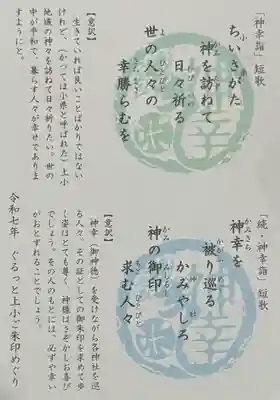 「神幸詣」短歌
ちいさがた
神を訪ねて
日々祈る
世の人々の
幸勝らむを
【意訳】
生きていれば良いことばかりではない
けれど、(かつては小県と呼ばれた)上小
地域の神々を訪ねて日々祈りたい。世の
中が平和で、暮らす人々が幸せでありま
すようにと。
「続・神幸詣」短歌
神幸を
被り巡る
かみやしろ
神の御印
求む人々
【意訳】
「神幸(御神徳)を受けながら各神社を巡
る人々。その証としての御朱印を求めて歩
く姿はとても尊く、神様はさぞかしお喜び
でしょう。その人のもとには、必ずや幸い
がおとずれることでしょう。
令和七年 ぐるっと上小ご朱印めぐり